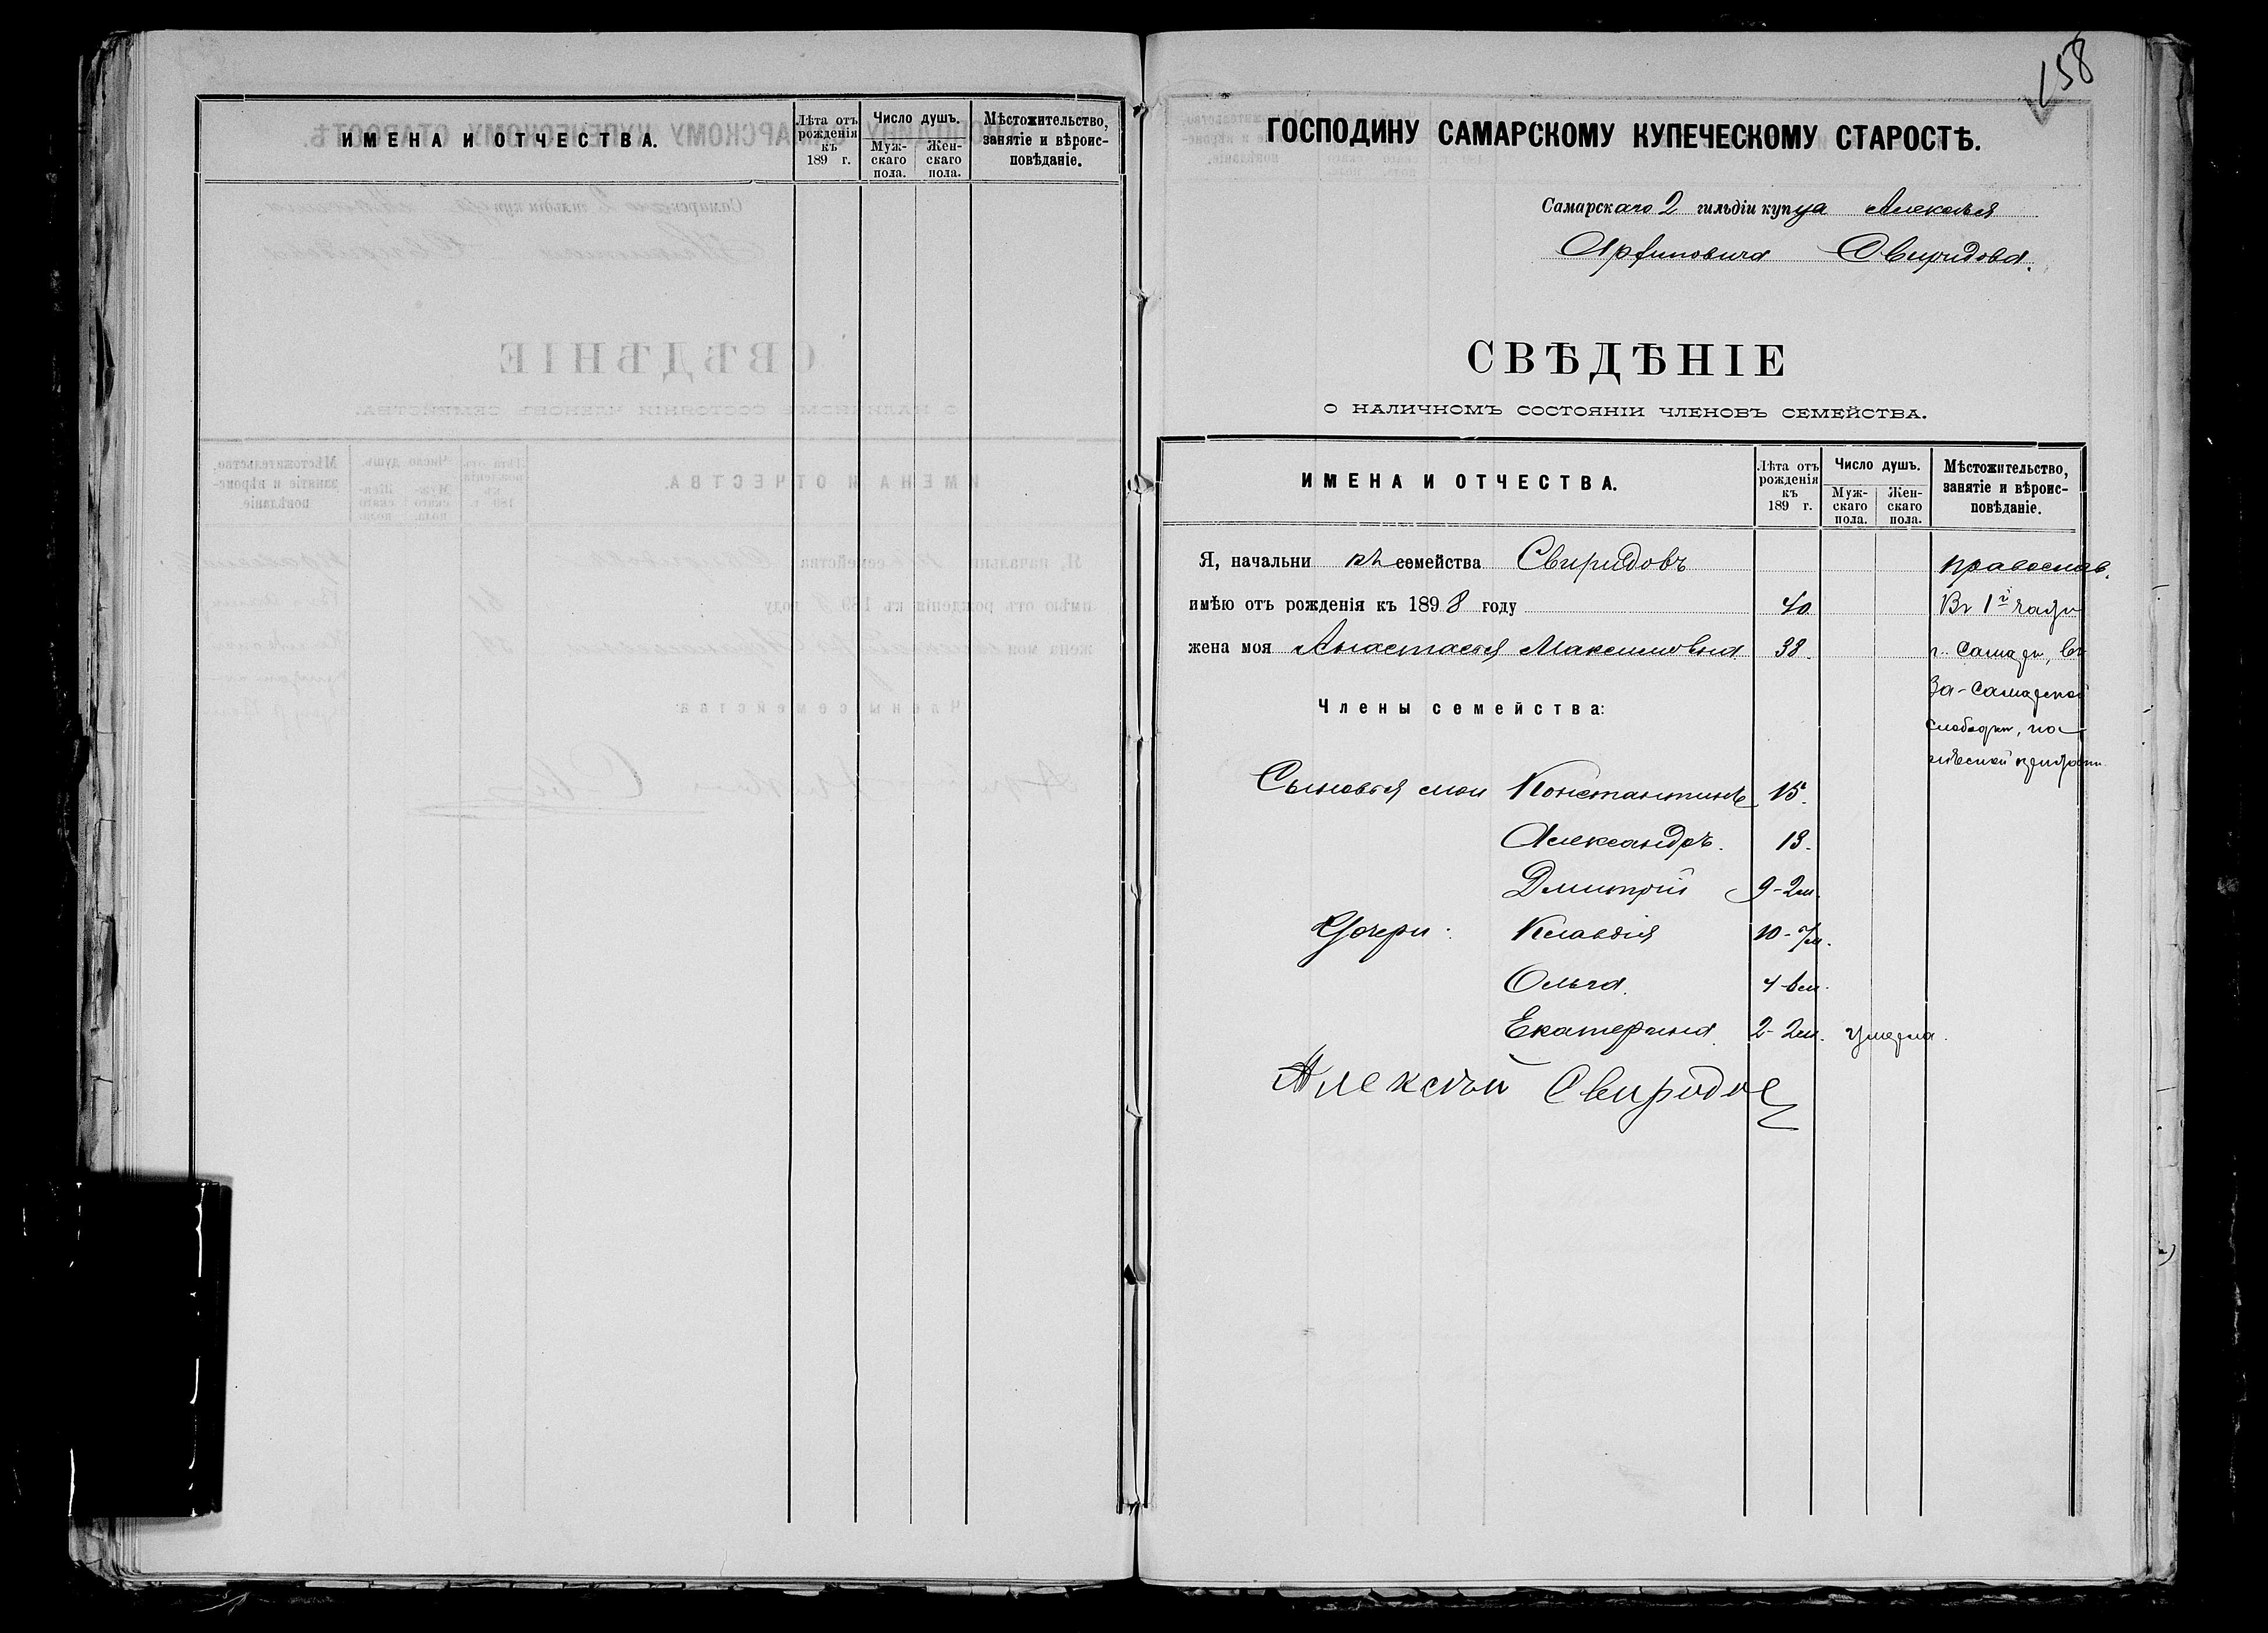 ИМЕНА И ОТЧЕСТВА.
Лѣта отъ рожденія къ 189 г.
Число душъ.
Муж-скаго пола.
Жен-скаго пола.
Мѣстожительство, занятіе и вѣроис-повѣданіе.
158
ГОСПОДИНУ САМАРСКОМУ КУПЕЧЕСКОМУ СТАРОСТѢ.
Самарскаго 2 гильдіи купца Алексѣя
Свиридова.
СВѢДѢНІЕ
О НАЛИЧНОМЪ СОСТОЯНІИ ЧЛЕНОВЪ СЕМЕЙСТВА.
ИМЕНА И ОТЧЕСТВА.
Лѣта отъ рожденія къ 189 г.
Число душъ.
Муж-скаго пола.
Жен-скаго пола.
Мѣстожительство, занятіе и вѣроис-повѣданіе.
Я, начальникъ семейства Свиридовъ православ.
имѣю отъ рожденія къ 1898 году 40 Въ 1й части
жена моя Анастасія Максимовна 38. г. Самары, въ
За-Самарской
Члены семейства:
слободкѣ, по
Сыновья мои Константинъ 15.
Александръ. 13.
Дмитрій 9-2м.
Дочери: Клавдія 10-7м.
Ольга. 4-6м.
Екатерина. 2-2м. умерла.
Алексѣй Свиридов